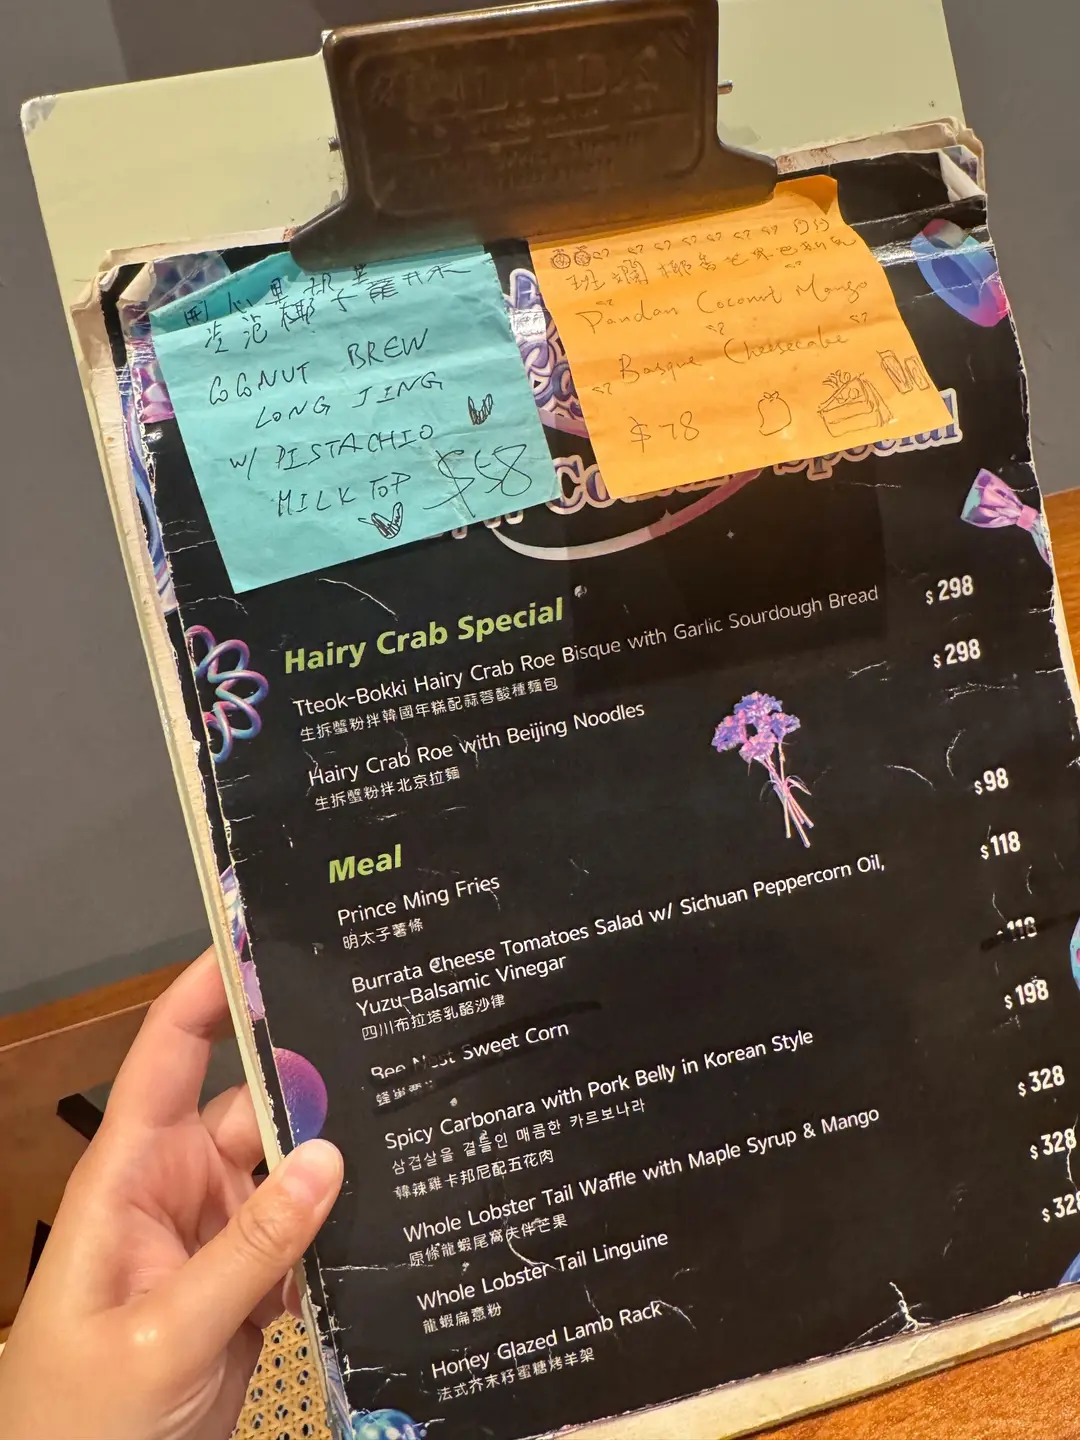 開心果視
冷泡椰子龍井茶
COCONUT BREW
LONG JING
W/ PISTACHIO
MILK TOP
$58
班斕椰香芒果巴斯克
Pandan Coconut Mango
Basque Cheesecake
$78
Special
Hairy Crab Special
Tteok-Bokki Hairy Crab Roe Bisque with Garlic Sourdough Bread $298
生拆蟹粉拌韓國年糕配蒜蓉酸種麵包
Hairy Crab Roe with Beijing Noodles $298
生拆蟹粉拌北京拉麵
Meal
Prince Ming Fries $98
明太子薯條
Burrata Cheese Tomatoes Salad w/ Sichuan Peppercorn Oil, $118
Yuzu-Balsamic Vinegar
四川布拉塔乳酪沙律
Bee Nest Sweet Corn 118
Spicy Carbonara with Pork Belly in Korean Style $198
삼겹살을 곁들인 매콤한 카르보나라
韓辣雞卡邦尼配五花肉
Whole Lobster Tail Waffle with Maple Syrup & Mango $328
原條龍蝦尾窩夫伴芒果
Whole Lobster Tail Linguine $328
龍蝦扁意粉
Honey Glazed Lamb Rack $328
法式芥末籽蜜糖烤羊架